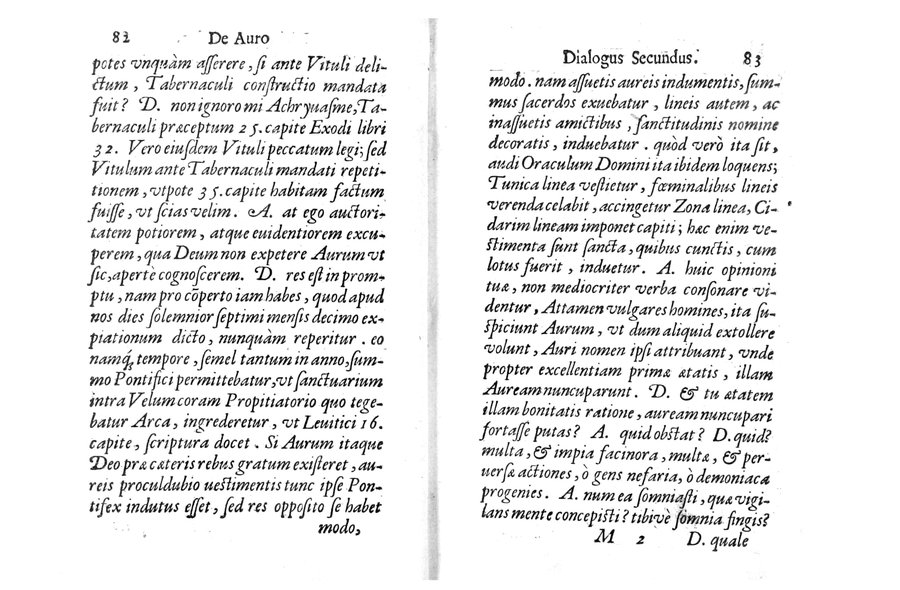 82 De Auro
potes vnquàm aſſerere, ſi ante Vituli deli-
ctum, Tabernaculi conſtructio mandata
fuit? D. non ignoro mi Achryuaſme, Ta-
bernaculi præceptum 25. capite Exodi libri
32. Vero eiuſdem Vituli peccatum legi; ſed
Vitulum ante Tabernaculi mandati repeti-
tionem, vtpote 35. capite habitam factum
fuiſſe, vt ſcias velim. A. at ego auctori-
tatem potiorem, atque euidentiorem excu-
perem, qua Deum non expetere Aurum vt
ſic, aperte cognoſcerem. D. res eſt in prom-
ptu, nam pro cōperto iam habes, quod apud
nos dies ſolemnior ſeptimi menſis decimo ex-
piationum dicto, nunquàm reperitur. eo
namq́, tempore, ſemel tantum in anno, ſum-
mo Pontifici permittebatur, vt ſanctuarium
intra Velum coram Propitiatorio quo tege-
batur Arca, ingrederetur, vt Leuitici 16.
capite, ſcriptura docet. Si Aurum itaque
Deo præ cæteris rebus gratum exiſteret, au-
reis proculdubio ueſtimentis tunc ipſe Pon-
tifex indutus eſſet, ſed res oppoſito ſe habet
modo,
Dialogus Secundus. 83
modo. nam aſſuetis aureis indumentis, ſum-
mus ſacerdos exuebatur, lineis autem, ac
inaſſuetis amictibus, ſanctitudinis nomine
decoratis, induebatur. quòd verò ita ſit,
audi Oraculum Domini ita ibidem loquens;
Tunica linea veſtietur, fœminalibus lineis
verenda celabit, accingetur Zona linea, Ci-
darim lineam imponet capiti; hæc enim ve-
ſtimenta ſunt ſancta, quibus cunctis, cum
lotus fuerit, induetur. A. huic opinioni
tuæ, non mediocriter verba conſonare vi-
dentur, Attamen vulgares homines, ita ſu-
ſpiciunt Aurum, vt dum aliquid extollere
volunt, Auri nomen ipſi attribuant, vnde
propter excellentiam primæ ætatis, illam
Auream nuncuparunt. D. & tu ætatem
illam bonitatis ratione, auream nuncupari
fortaſſe putas? A. quid obſtat? D. quid?
multa, & impia facinora, multæ, & per-
uerſæ actiones, ò gens nefaria, ò demoniaca
progenies. A. num ea ſomniaſti, quæ vigi-
lans mente concepiſti? tibivè ſomnia fingis?
M 2 D. quale